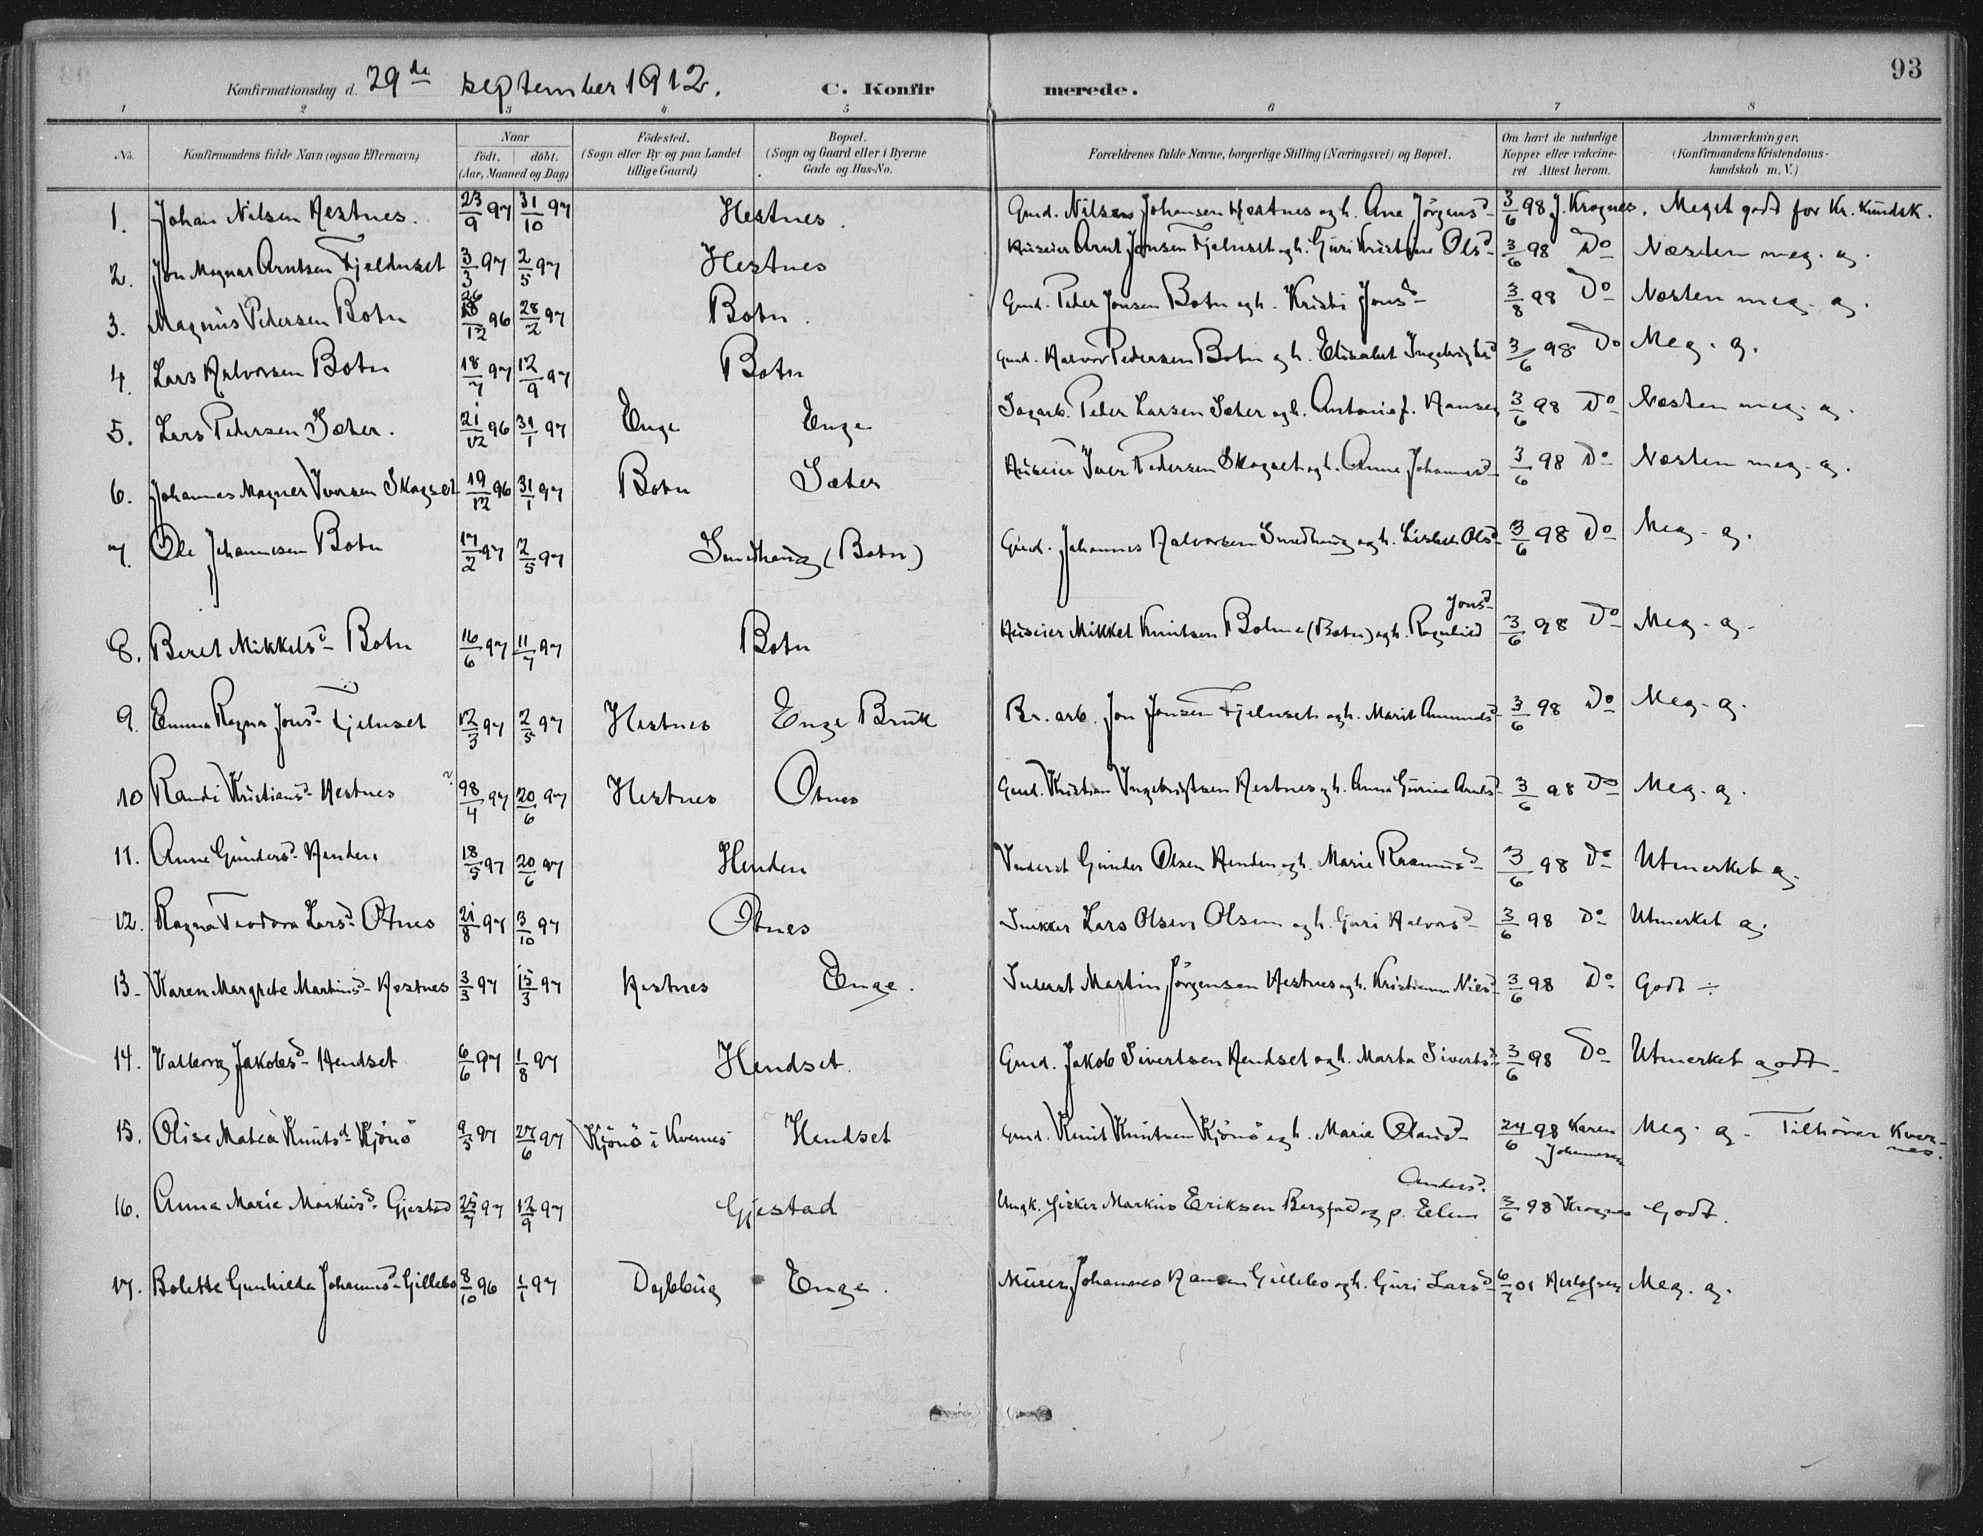 93
Konfirmationsdag d. 29de september 1912. C. Konfirmerede.
1 2 3 4 5 6 7 8
No. Konfirmandens fulde Navn (ogsaa Efternavn) Naar födt. döbt. (Aar, Maaned og Dag) Födested. (Sogn eller By og paa Landet tillige Gaard) Bopæl. (Sogn og Gaard eller i Byerne Gade og Hus-No. Forældrenes fulde Navne, borgerlige Stilling (Næringsvei) og Bopæl. Om havt de naturlige Kopper eller vakcineret Attest herom. Anmærkninger. (Konfirmandens Kristendomskundskab m. V.)
1. Johan Nilsen Hestnes. 23/9 97 31/10 97 Hestnes. Gmd. Nilsen Johansen Hestnes og h. Ane Jörgensd- 3/6 98 J. Krognes. Meget godt for Kr. kundsk.
2. Jon Magnar Arntsen Fjeldnset 3/3 97 2/5 97 Hestnes Huseier Arnt Jonsen Fjelnset og h. Guri Kristine Olsd- 3/6 98 Do Næsten meg. g.
3. Magnus Pedersen Botn 26/12 96 28/2 97 Botn. Gmd. Peder Jonsen Botn og h. Kristi Jonsd- 3/8 98 Do Næsten meg. g.
4. Lars Halvorsen Botn 18/7 97 12/9 97 Botn Gmd. Halvor Pedersen Botn og h. Elisabet 3/6 98 Do Meg. g.
5. Lars Pedersen Sæter. 21/12 96 31/1 97 Enge Enge Sagarb. Peder Larsen Sæter og h. Antonie J. Hansen 3/6 98 Do Næsten meg. g.
6. Johannes Magner Iversen Skogset 19/12 96 31/1 97 Botn Sæter Huseier Iver Pedersen Skogset og h. Anne Johannesd- 3/6 98 Do Næsten meg. g.
7. Ole Johannesen Botn 17/2 97 2/5 97 Smedhaug (Botn) Gmd. Johannes Halvorsen Smedhaug og h. Lisbet Olsd- 3/6 98 Do Meg. g.
8. Beret Mikkelsd- Botn 16/6 97 11/7 97 Botn Huseier Mikkel Knutsen Botn (Botn) og h. Ragnhild Jonsd- 3/6 98 Do Meg. g.
9. Emma Ragna Jonsd- Fjelnset 12/3 97 2/5 97 Hestnes Enge Bruk Br. arb. Jon Jonsen Fjelnset og h. Marit Amundsd- 3/6 98 Do Meg. g.
10 Randi Kristiansd- Hestnes ? 98/4 97 20/6 97 Hestnes Otnes Gmd. Kristian Ingebrigtsen Hestnes og h. Anne Gurine Arntsd- 3/6 98 Do Meg. g.
11. Anne Gundersd- Henden 18/5 97 20/6 97 Henden Inderst Gunder Olsen Henden og h. Marie Rasmusd- 3/6 98 Do Utmerket g.
12. Ragna Teodora Larsd- Otnes 21/8 97 3/10 97 Otnes Snekker Lars Olsen Olsen og h. Guri Halvorsd- 3/6 98 Do Utmerket g.
13. Karen Margrete Martinsd- Hestnes 3/3 97 15/3 97 Hestnes Enge. Inderst Martin Jörgensen Hestnes og h. Kristianne Nilsd- 3/6 98 Do Godt ÷
14. Valborg Jakobsd- Hendset 6/6 97 1/8 97 Hendset. Gmd. Jakob Sivertsen Hendset og h. Marta Sivertsd- 3/6 98 Do Utmerket godt.
15. Olise Matea Knutsd- Kjönö 9/5 97 27/6 97 Kjönö i Kvernes Hendset Gmd. Knut Knutsen Kjönö og h. Marie Olausd- 24/6 98 Karen Johannesen Meg. g. Tilhörer Kvernes.
16. Anna Marie Markusd- Gjestad 25/7 97 12/9 97 Gjestad Ungk. fisker Markus Eriksen og p. Elen Andersd. 3/6 98 Krognes Godt.
17. Bolette Gunhilda Johannesd- Gillebo 8/10 96 1/1 97 Enge. Murer Johannes Hansen Gillebo og h. Guri Larsd- 6/7 01 Herlofsen Meg. g.